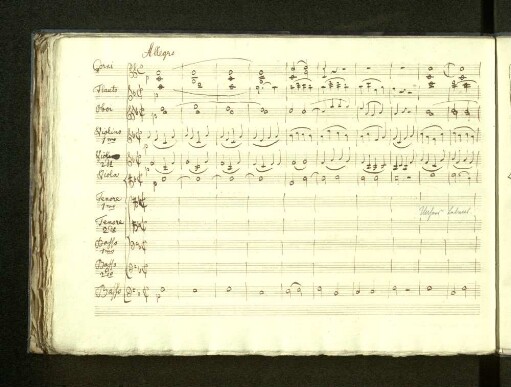 Allegro
Corni
Flauto
Oboe
Violino
1mo
Violino
2do
Viola
Tenore
1mo
Tenore
2do
Basso
1mo
Basso
2do
Basso